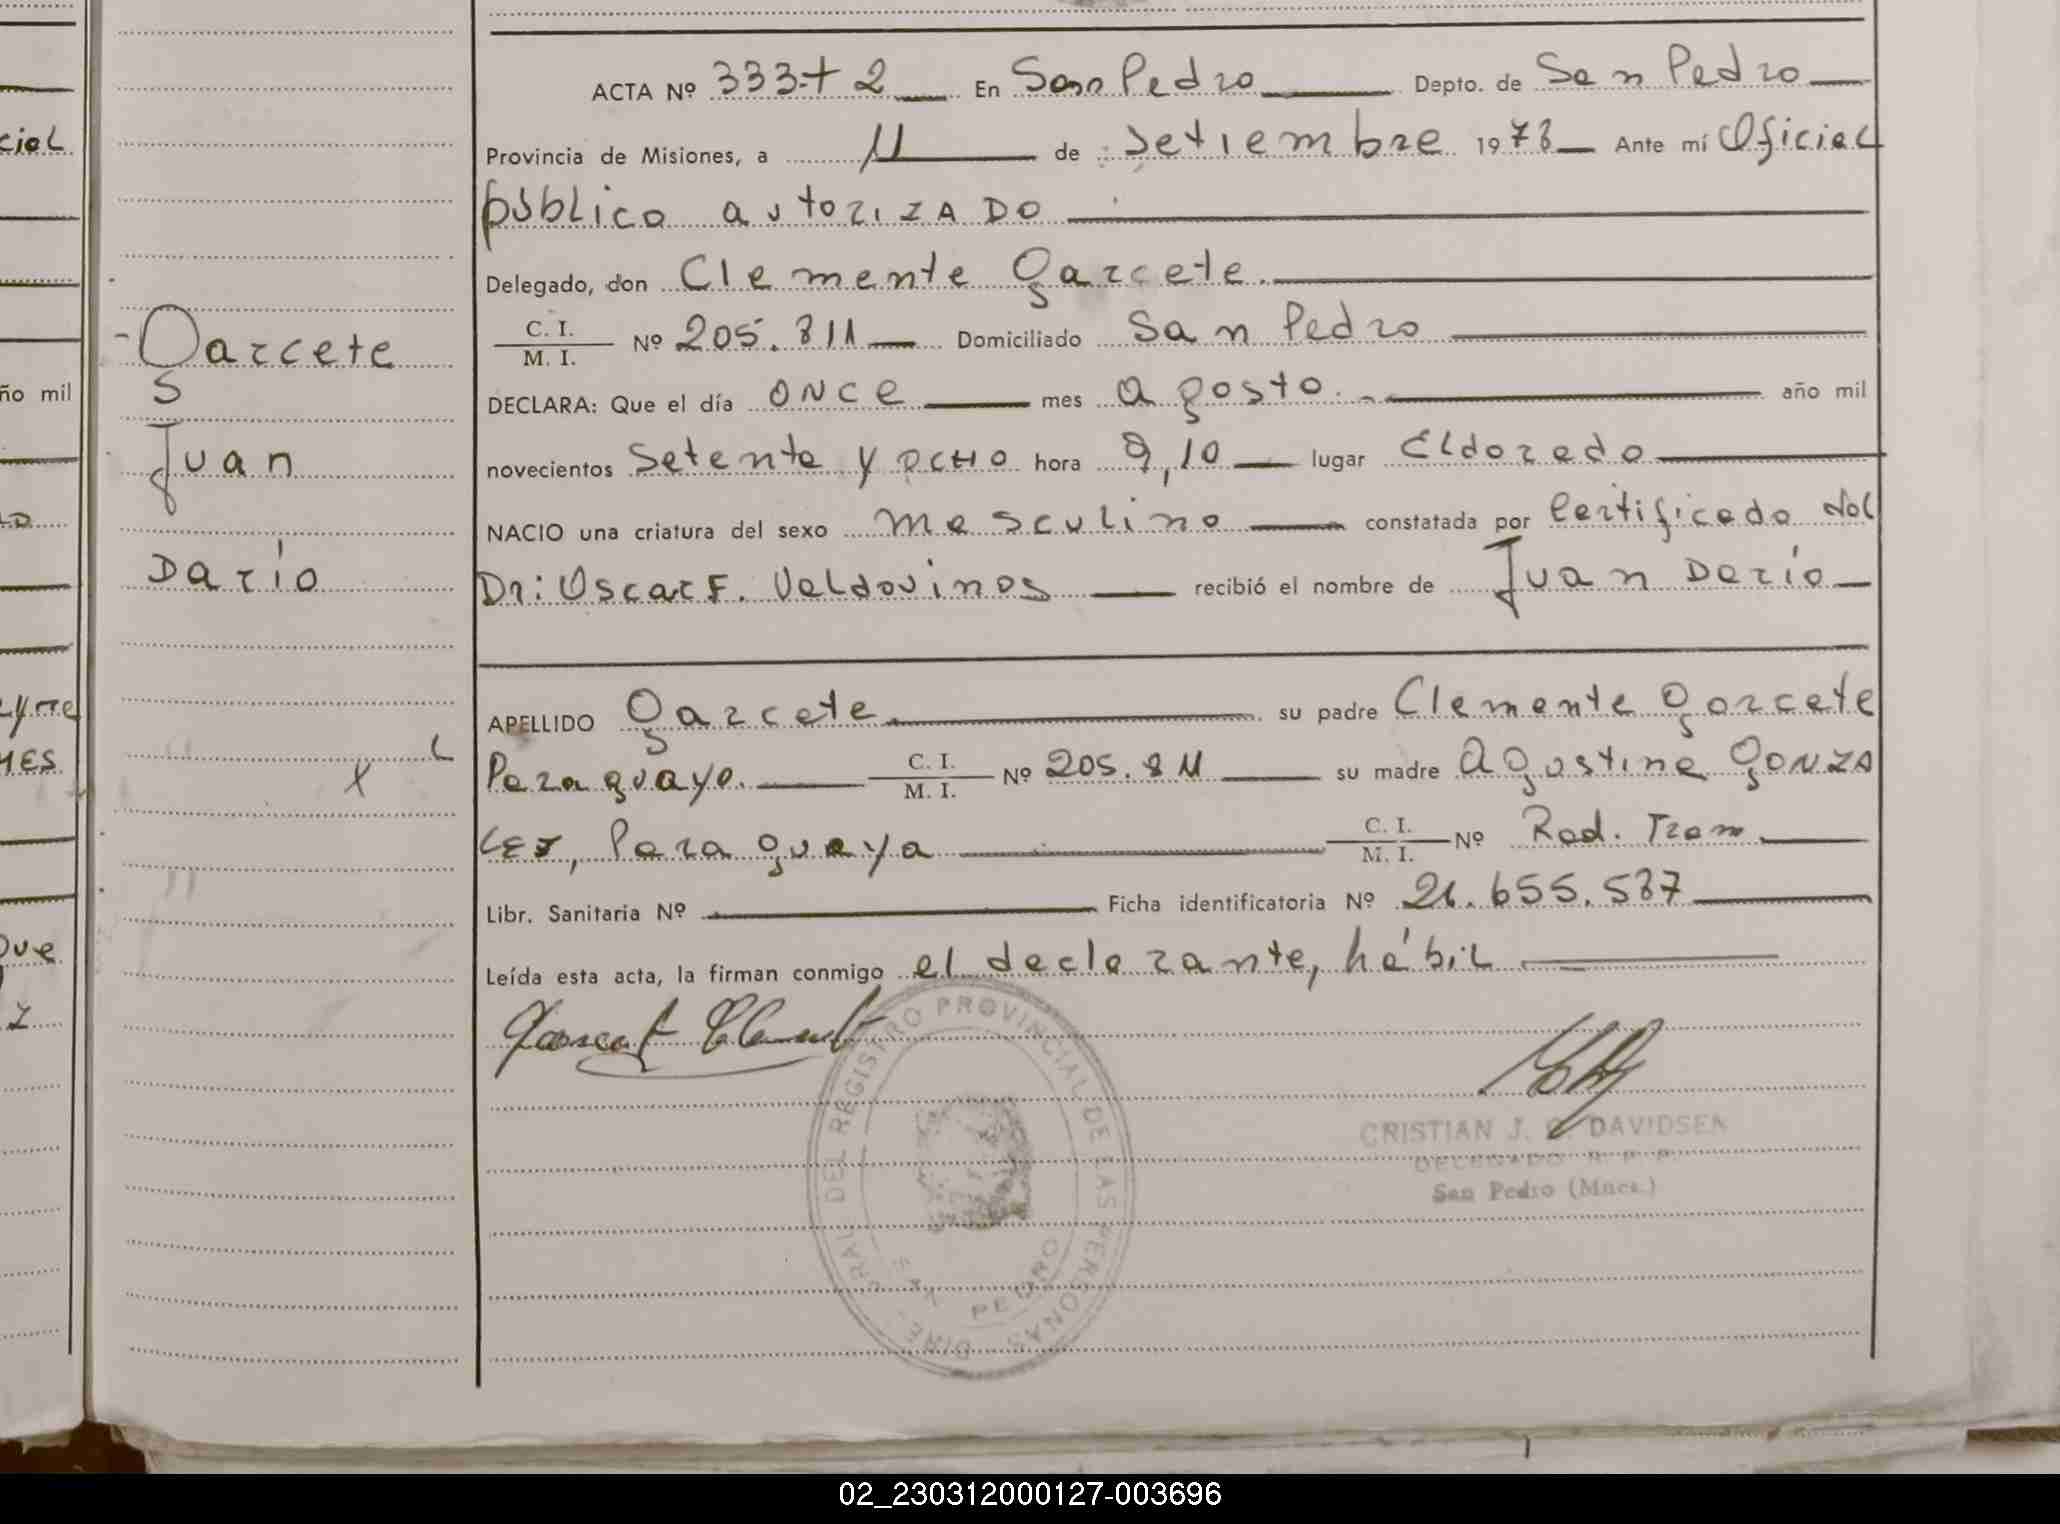 ACTA Nº 333-T 2 En San Pedro Depto. de San Pedro
Provincia de Misiones, a 11 de Setiembre 1978 Ante mí Oficial
público autorizado
Delegado, don Clemente Garcete.
C. I. / M. I. Nº 205.811 Domiciliado San Pedro
DECLARA: Que el día once mes agosto. año mil
novecientos Setenta y ocho hora 9,10 lugar Eldorado
NACIO una criatura del sexo masculino constatada por Certificado del
Dr: Oscar F. Valdovinos recibió el nombre de Juan Darío
Garcete
Juan
Darío
APELLIDO Garcete su padre Clemente Garcete
Paraguayo. C. I. / M. I. Nº 205.811 su madre Agustina Gonza
lez, Paraguaya C. I. / M. I. Nº Rad. Tram.
Libr. Sanitaria Nº Ficha identificatoria Nº 26.655.587
Leída esta acta, la firman conmigo el declarante, hábil
REGISTRO PROVINCIAL DE LAS PERSONAS
SAN PEDRO
CRISTIAN J. DAVIDSEN
DELEGADO R. P. P.
San Pedro (Mnes.)
ciel
ño mil
MES
que
02_230312000127-003696